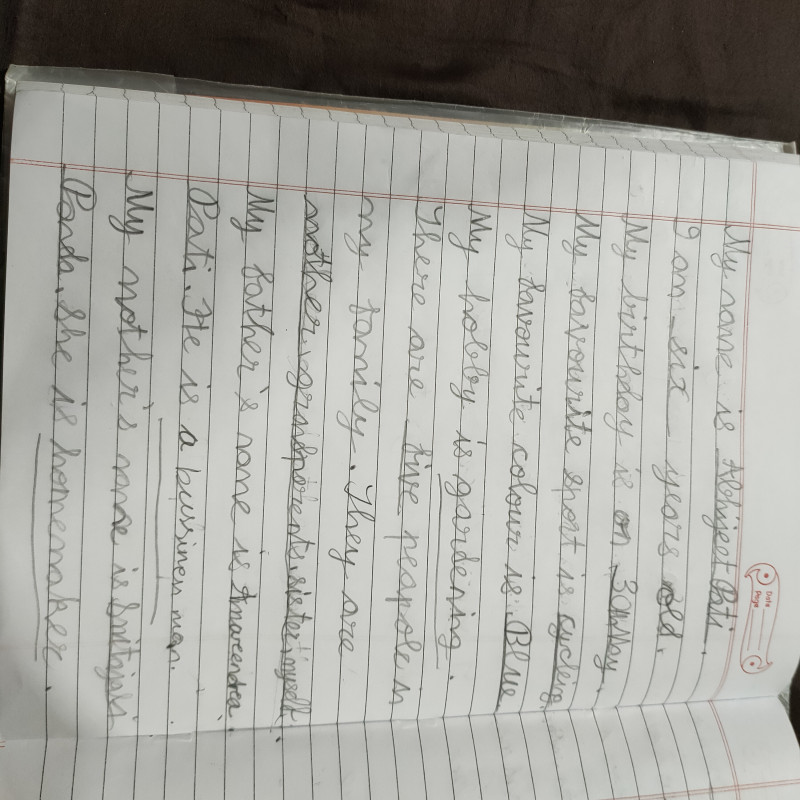 Date
Page
My name is Abhijeet Pati.
I am six years old.
My birthday is on 30 May.
My favourite sport is cycling
My favourite colour is Blue
My hobby is gardening.
There are five peopole in
my family. They are
mother, grandparents, sister, myself.
My father's name is Amarendra.
Pati. He is a bussiness man.
My mother's name is
Panda. She is homemaker.